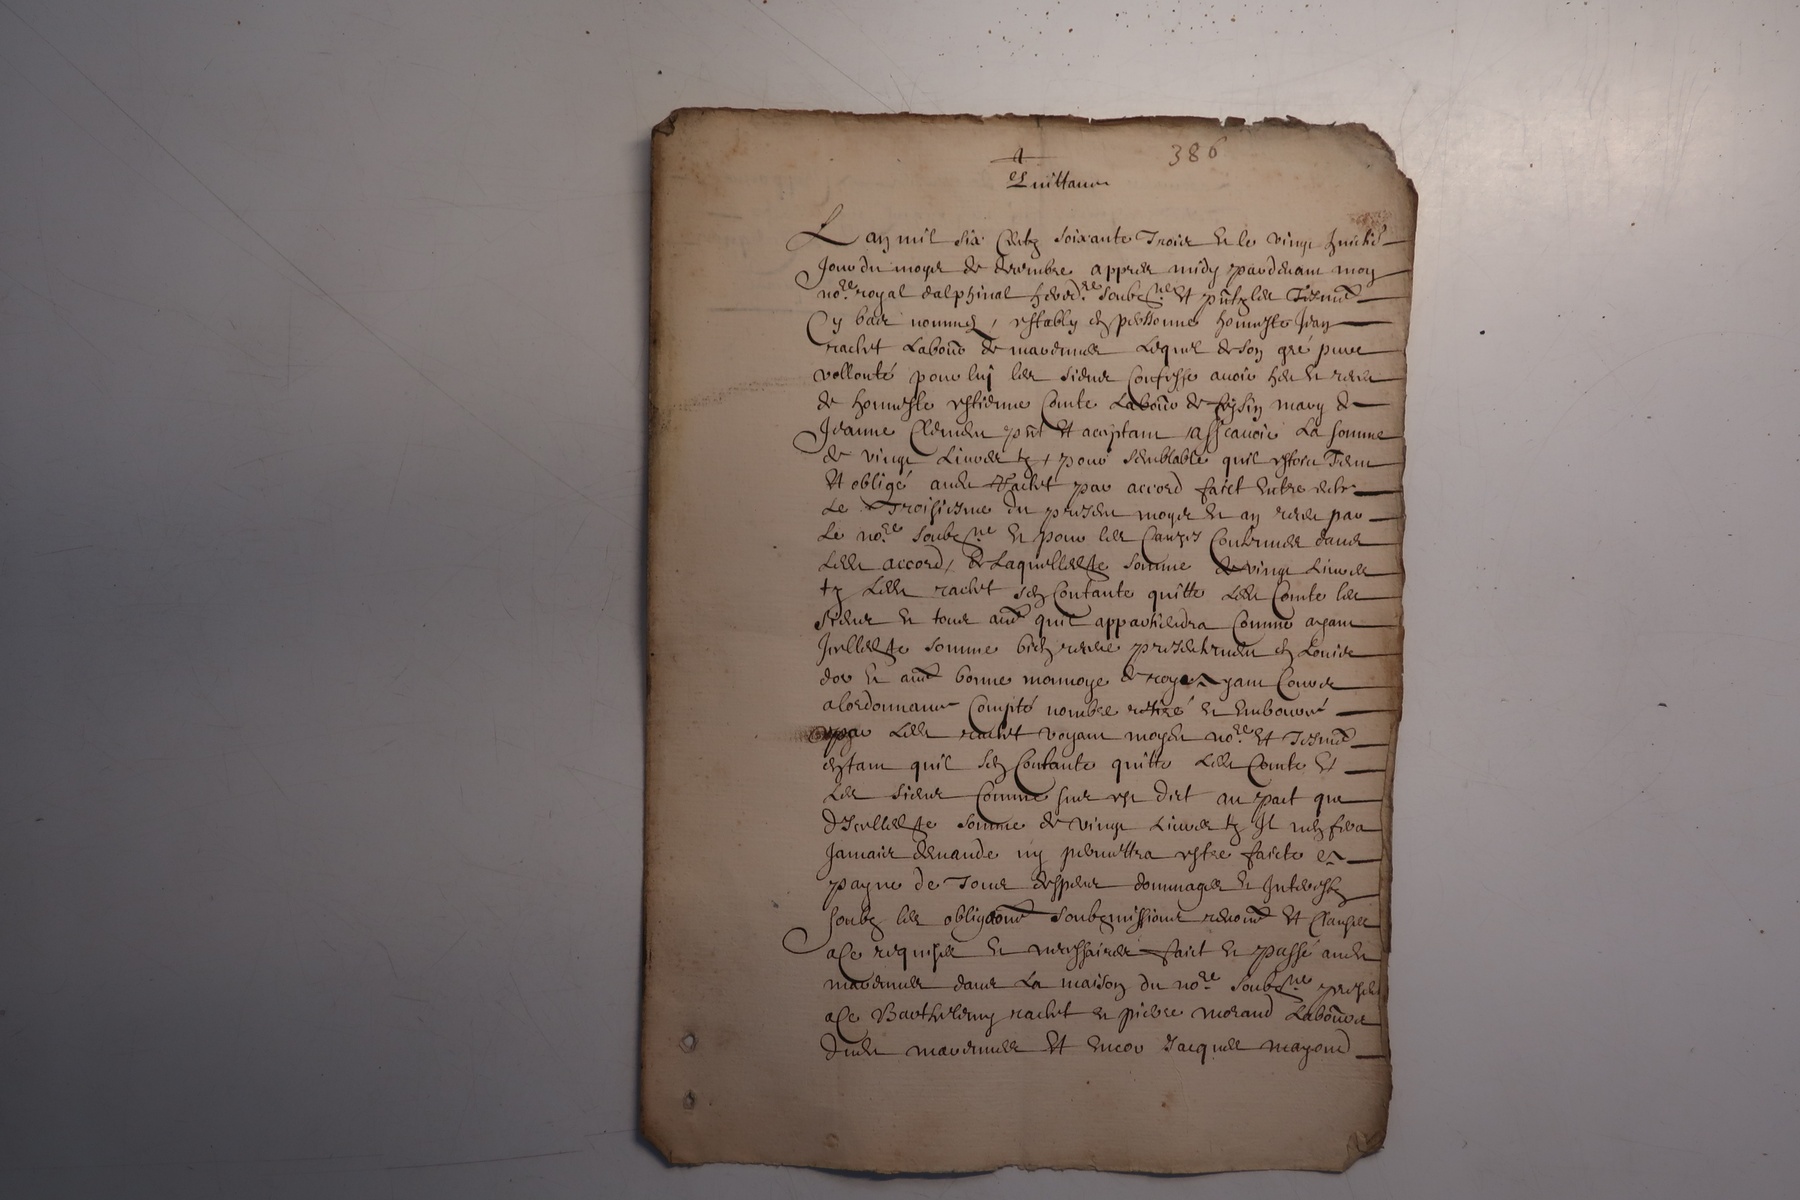 386
Quittance
Lan mil six Centz soixante Trois et le vingt huictie
Jour du moys de decembre appres midy pardevant moy
no.re royal dalphinal hered.re soubz.ne et pntz les Tesmz
Cy bas nommes, estably en personne honneste Jean
rachet Labour de marennes Lequel de son gré pure
vollonté pour luy les siens Confesse avoir heu et receu
de honneste estienne Comte Labour de feysin mary de
Jeanne Clement pnt et aceptant, asscavoir La somme
de vingt Livres tz, pour semblable quil estoit Tenu
et obligé aud Rachet par accord faict entre eulx
Le Troisiesme du present moys et an receu par
Le no.re soubz.ne et pour les Causes Contenues dans
Led accord, de Laquelled somme de vingt Livres
tz Led rachet sen Contante quitte Led Comte les
siens et tous autz quil appartiendra Comme ayant
Icelled somme bien receue presentement en Louis
dor et autz bonne monnoye de roy ayant Cours
a lordonnance Compté nombre retiré et Embourcé
par Led rachet voyant moyd no.re et Tesmz
entant quil sen Contante quitte Led Comte et
Les siens Comme sus est dict au pact que
dIcelled somme de vingt Livres tz Il nen fera
Jamais demande ny permettra estre faicte en
payne de Tous despens dommages et Interestz
soubz les obligaons soubzmissions renonz et Clauses
a Ce requises et necessaires faict et passé aud
marennes dans La maison du no.re soubz.ne presens
a Ce Barthelemy rachet et pierre morand Labours
dud marennes et encor Jacques mayoud